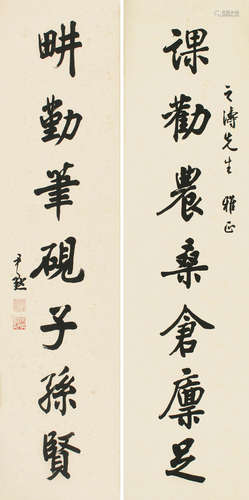 課勸農桑倉廩足
之濤先生 雅正
畊勤筆硯子孫賢
尹默